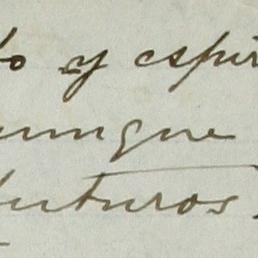 to y espir
aunque
futuros,